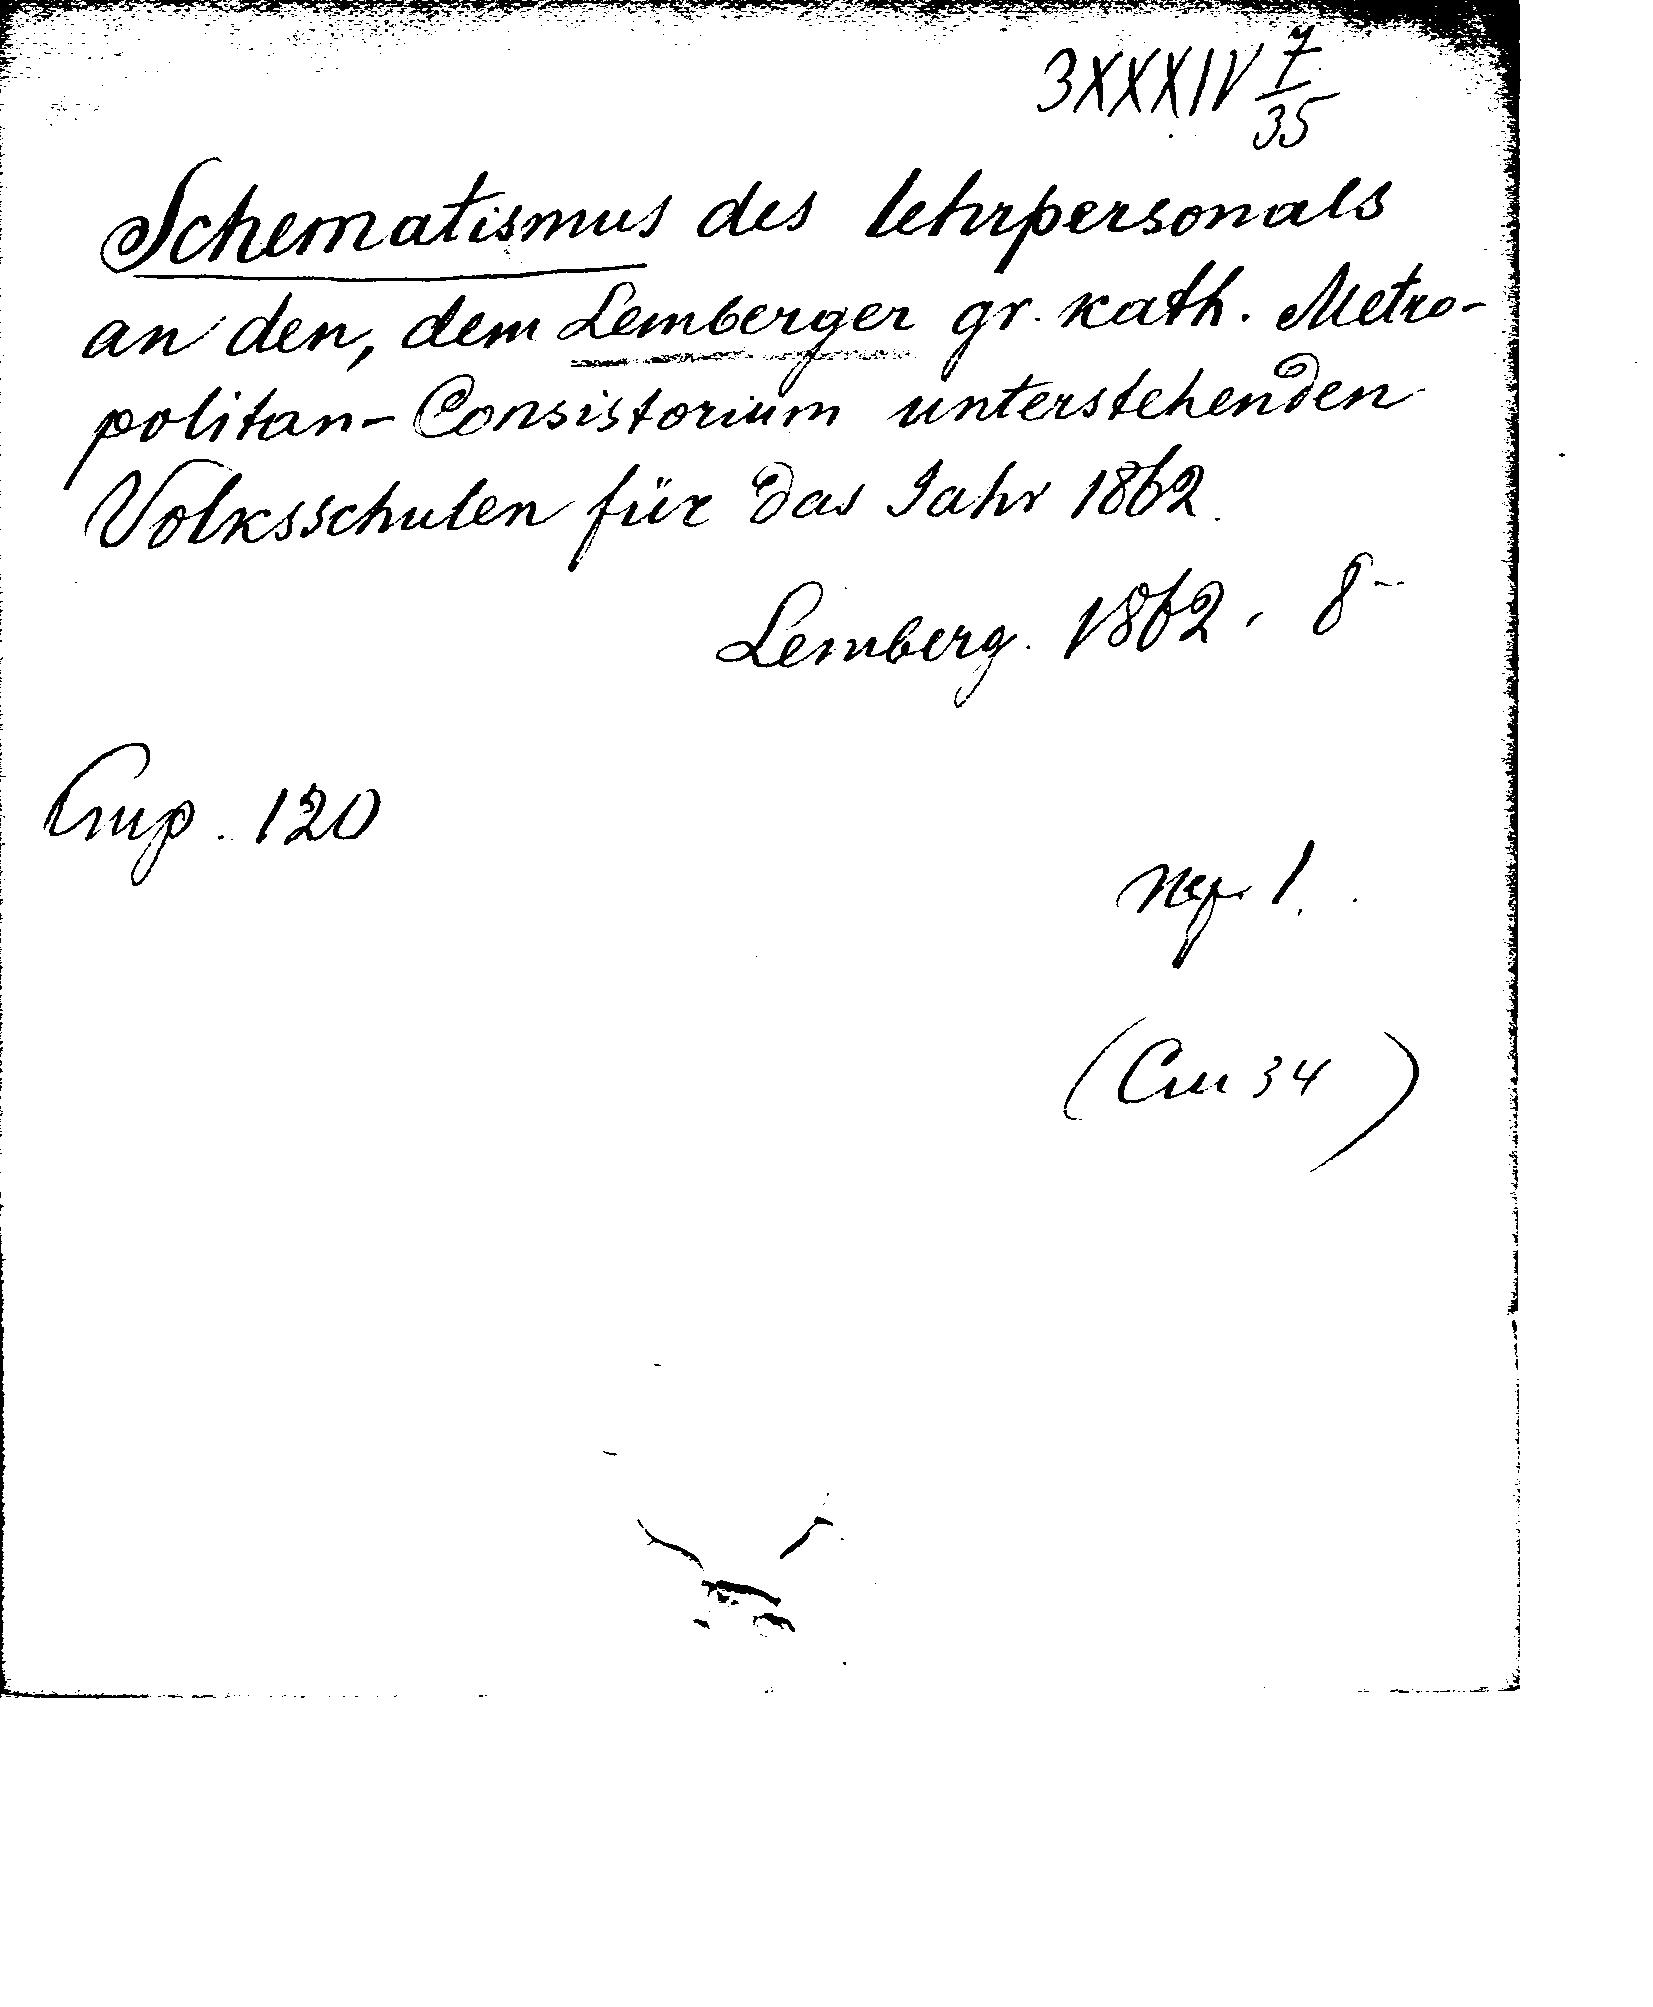 3XXXIV 7/35
Schematismus des Lehrpersonals
an den, dem Lemberger gr. kath. Metro-
politan-Consistorium unterstehenden
Volksschulen für das Jahr 1862.
Lemberg. 1862. 8-
Стр. 120
пер. 1.
(Сш 34)